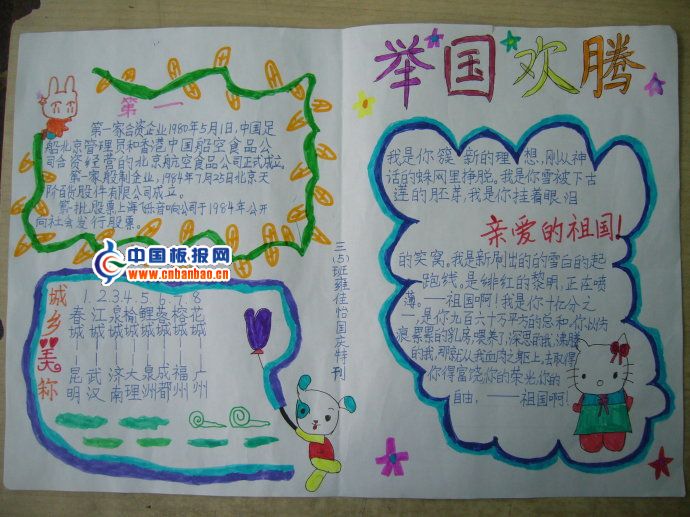 举国欢腾
第一
第一家合资企业1980年5月1日,中国民
船北京管理员和香港中国船空食品公
司合资经营的北京航空食品公司正式成立,
第一家股制企业,1984年7月25日北京天
阶百货股件有限公司成立。
第一批股票上海飞乐音响公司于1984年公开
向社会发行股票。
中国板报网
www.cnbanbao.cn
城乡美称
1.2.3.4.5.6.7.8
春江泉榆鲤蓉榕花
城城城城城城城城
昆武济大泉成福广
明汉南理洲都州州
三(5)班雍佳怡国庆特刊
我是你簇新的理想,刚从神
话的蛛网里挣脱。我是你雪被下古
莲的胚芽,我是你挂着眼泪
亲爱的祖国!
的笑窝。我是新刷出的的雪白的起
跑线。是绯红的黎明,正在喷
薄。——祖国啊!我是你十亿分之
一,是你九百六十万平方的总和,你以伤
痕累累的乳房,喂养了,深思的我,沸腾
的我,那就从我血肉之躯上,去取得
你得富饶你的荣光,你的
自由,——祖国啊!